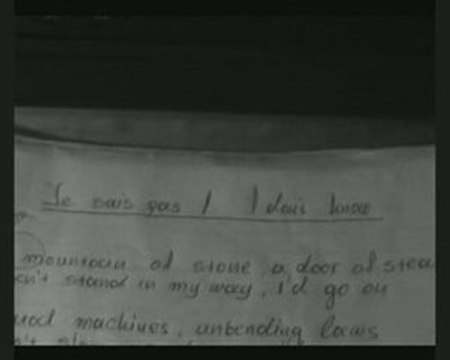 Je sais pas / I don't know
mountain of stone a door of stea
can't stand in my way, I'd go on
machines, unbending laws